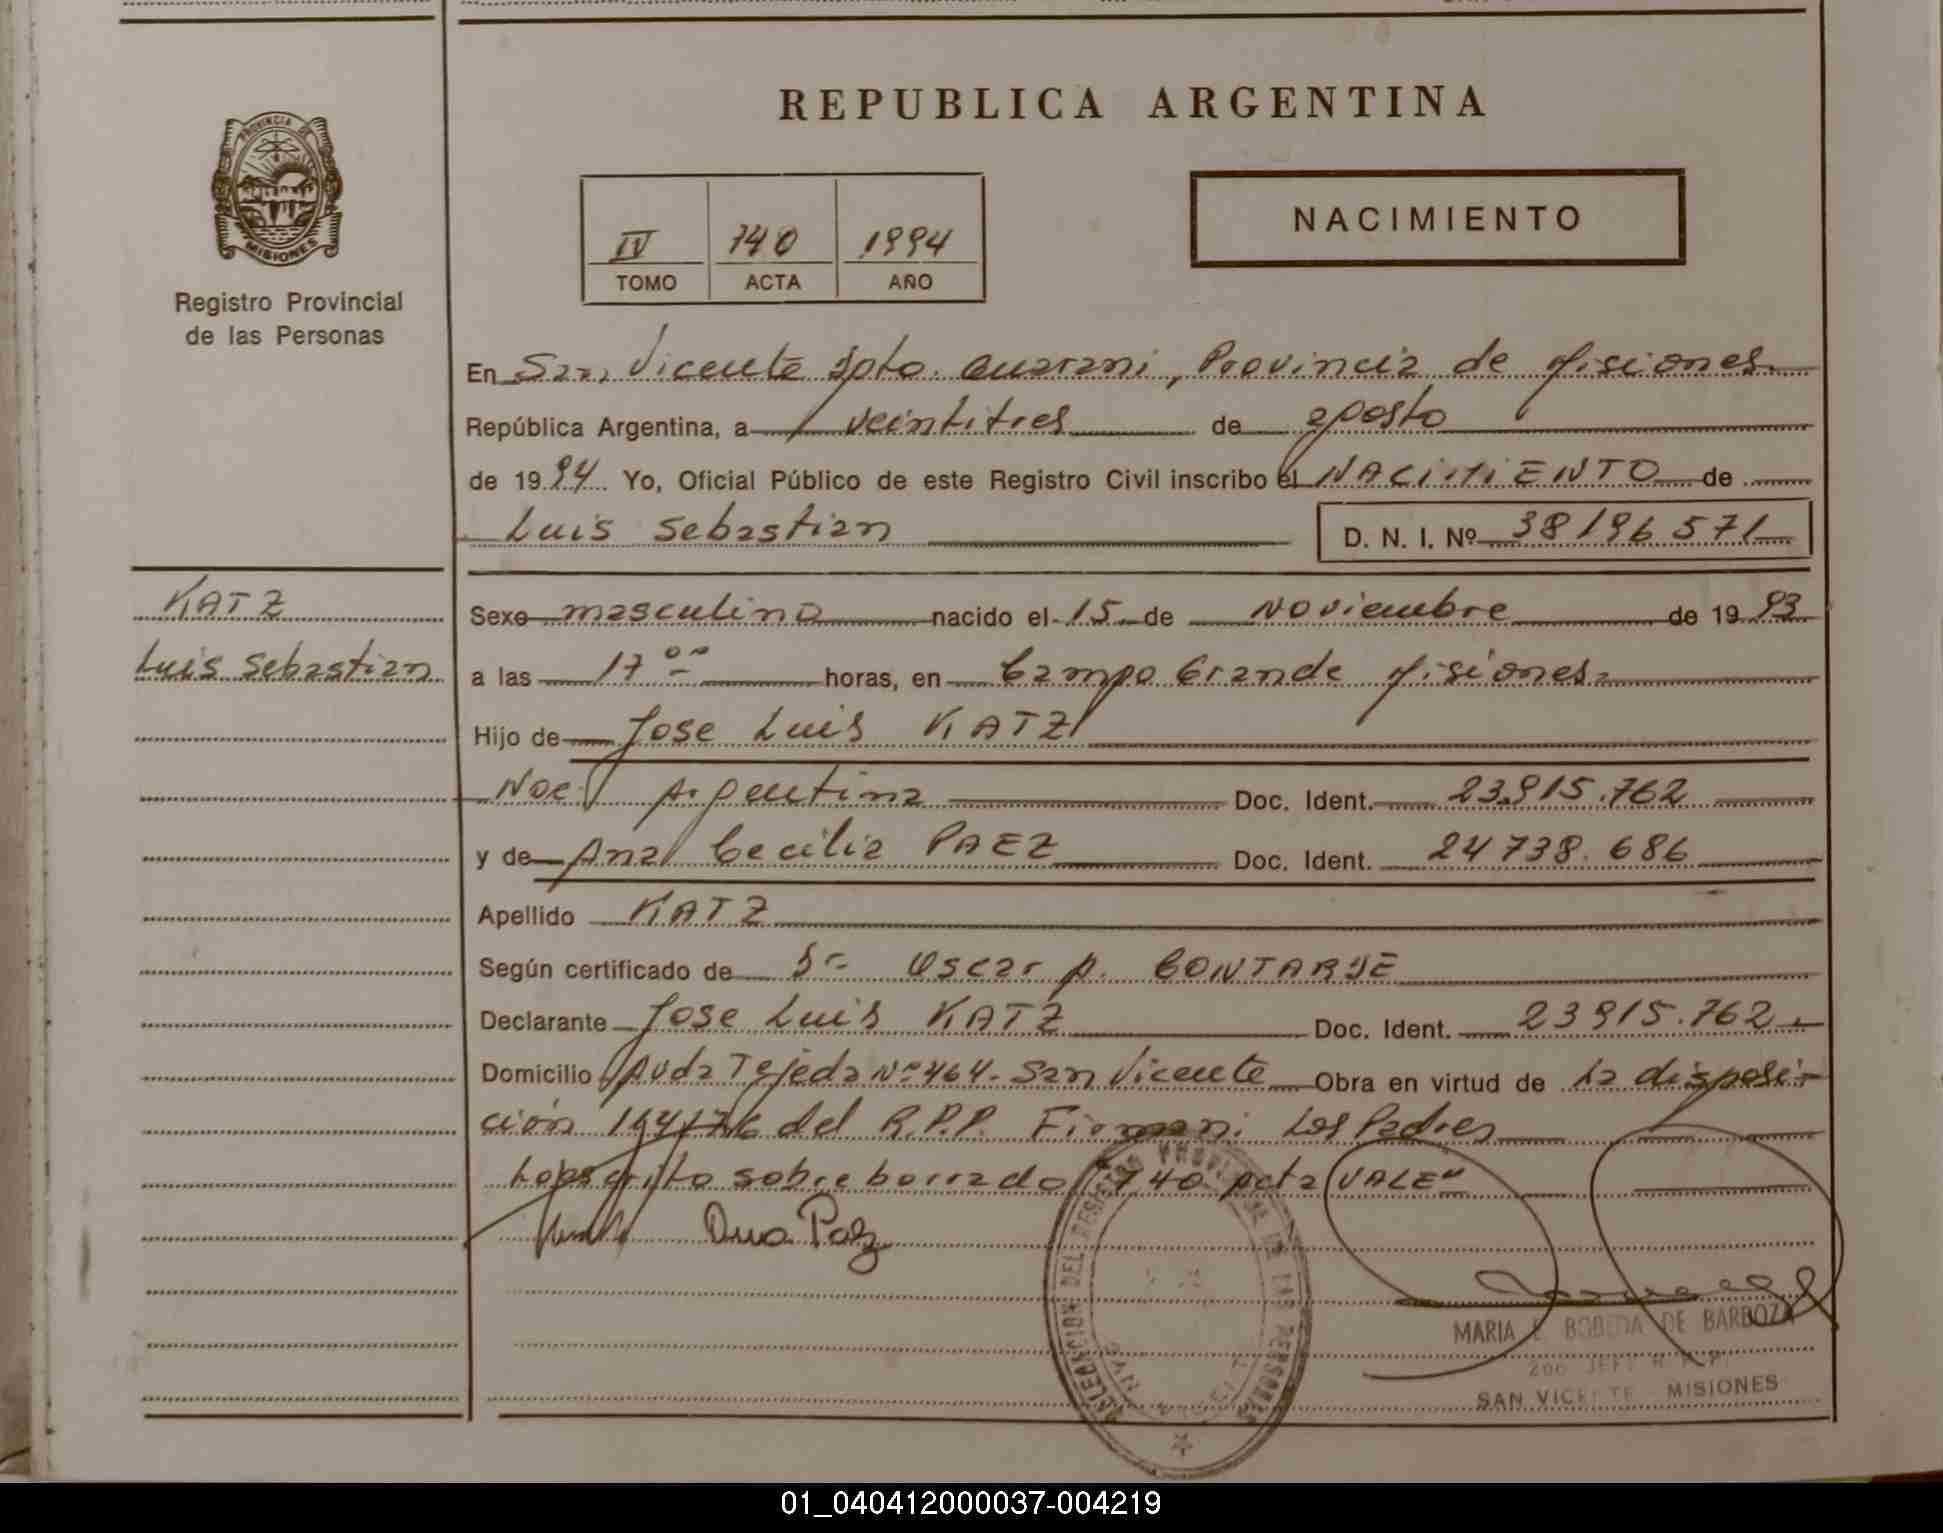 REPUBLICA ARGENTINA
PROVINCIA DE
MISIONES
Registro Provincial
de las Personas
IV 740 1994
TOMO ACTA AÑO
NACIMIENTO
En San Vicente Dpto. Guarani, Provincia de Misiones
República Argentina, a veintitres de agosto
de 1994 Yo, Oficial Público de este Registro Civil inscribo el NACIMIENTO de
Luis Sebastian D. N. I. Nº 38196571
KATZ
Luis Sebastian
Sexo masculino nacido el 15 de Noviembre de 1993
a las 17 00 horas, en Campo Grande Misiones
Hijo de Jose Luis KATZ
Nac. Argentina Doc. Ident. 23.915.762
y de Ana Cecilia PAEZ Doc. Ident. 24738.686
Apellido KATZ
Según certificado de Dr Oscar A.
Declarante Jose Luis KATZ Doc. Ident. 23915.762
Domicilio Avda Tejeda Nº 464. San Vicente Obra en virtud de la disposi-
ción del R.P.P. Firman: Los Padres
Lo escrito sobre borrado "740 acta VALE"
Ana Paez
DELEGACION DEL REGISTRO PROVINCIAL DE LAS PERSONAS
MARIA E. BOBEDA DE BARBOZA
2do JEFE R. P. P.
SAN VICENTE - MISIONES
01_040412000037-004219